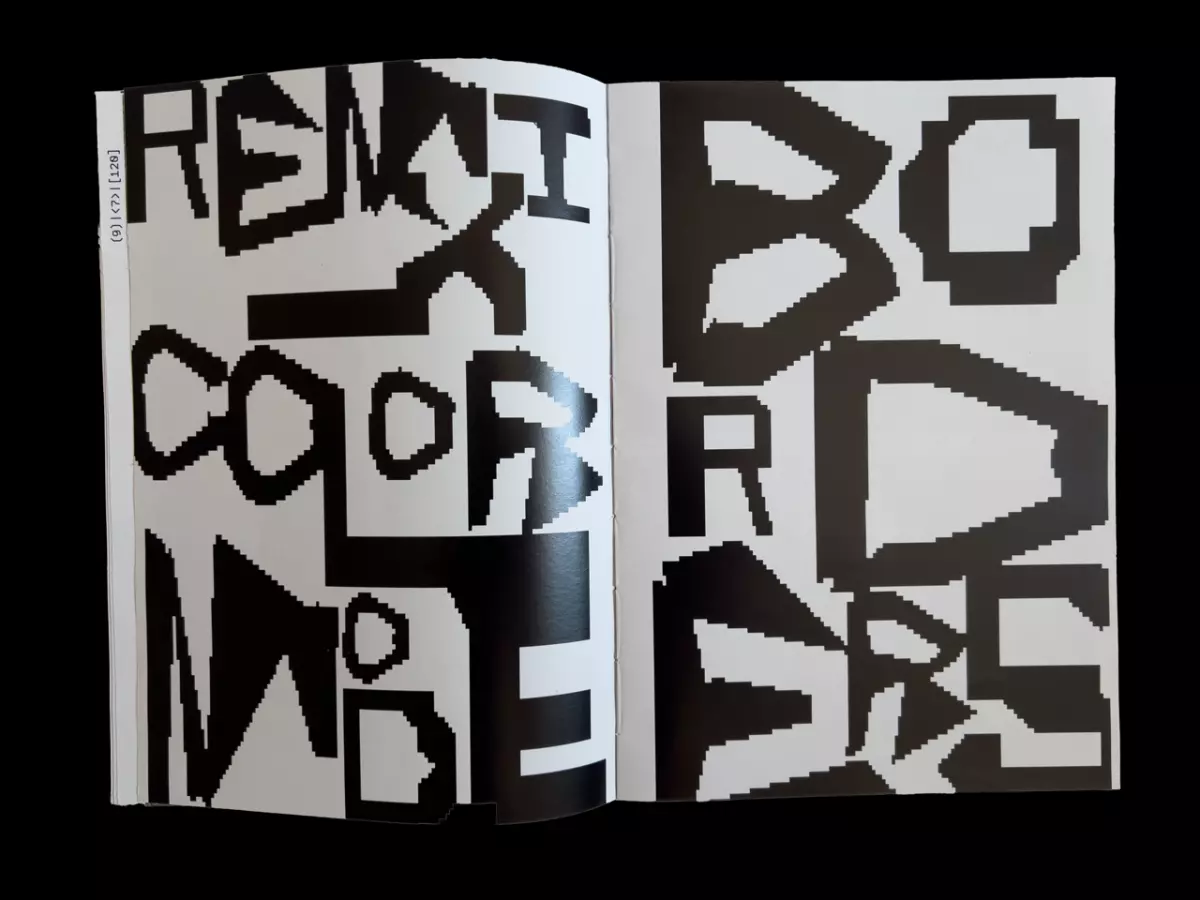 (9)|<7>|[120]
REMI
X
COLOR
MODE
BO
RD
ERS